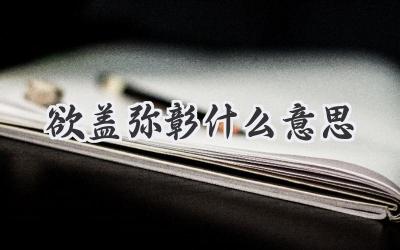 欲盖弥彰什么意思